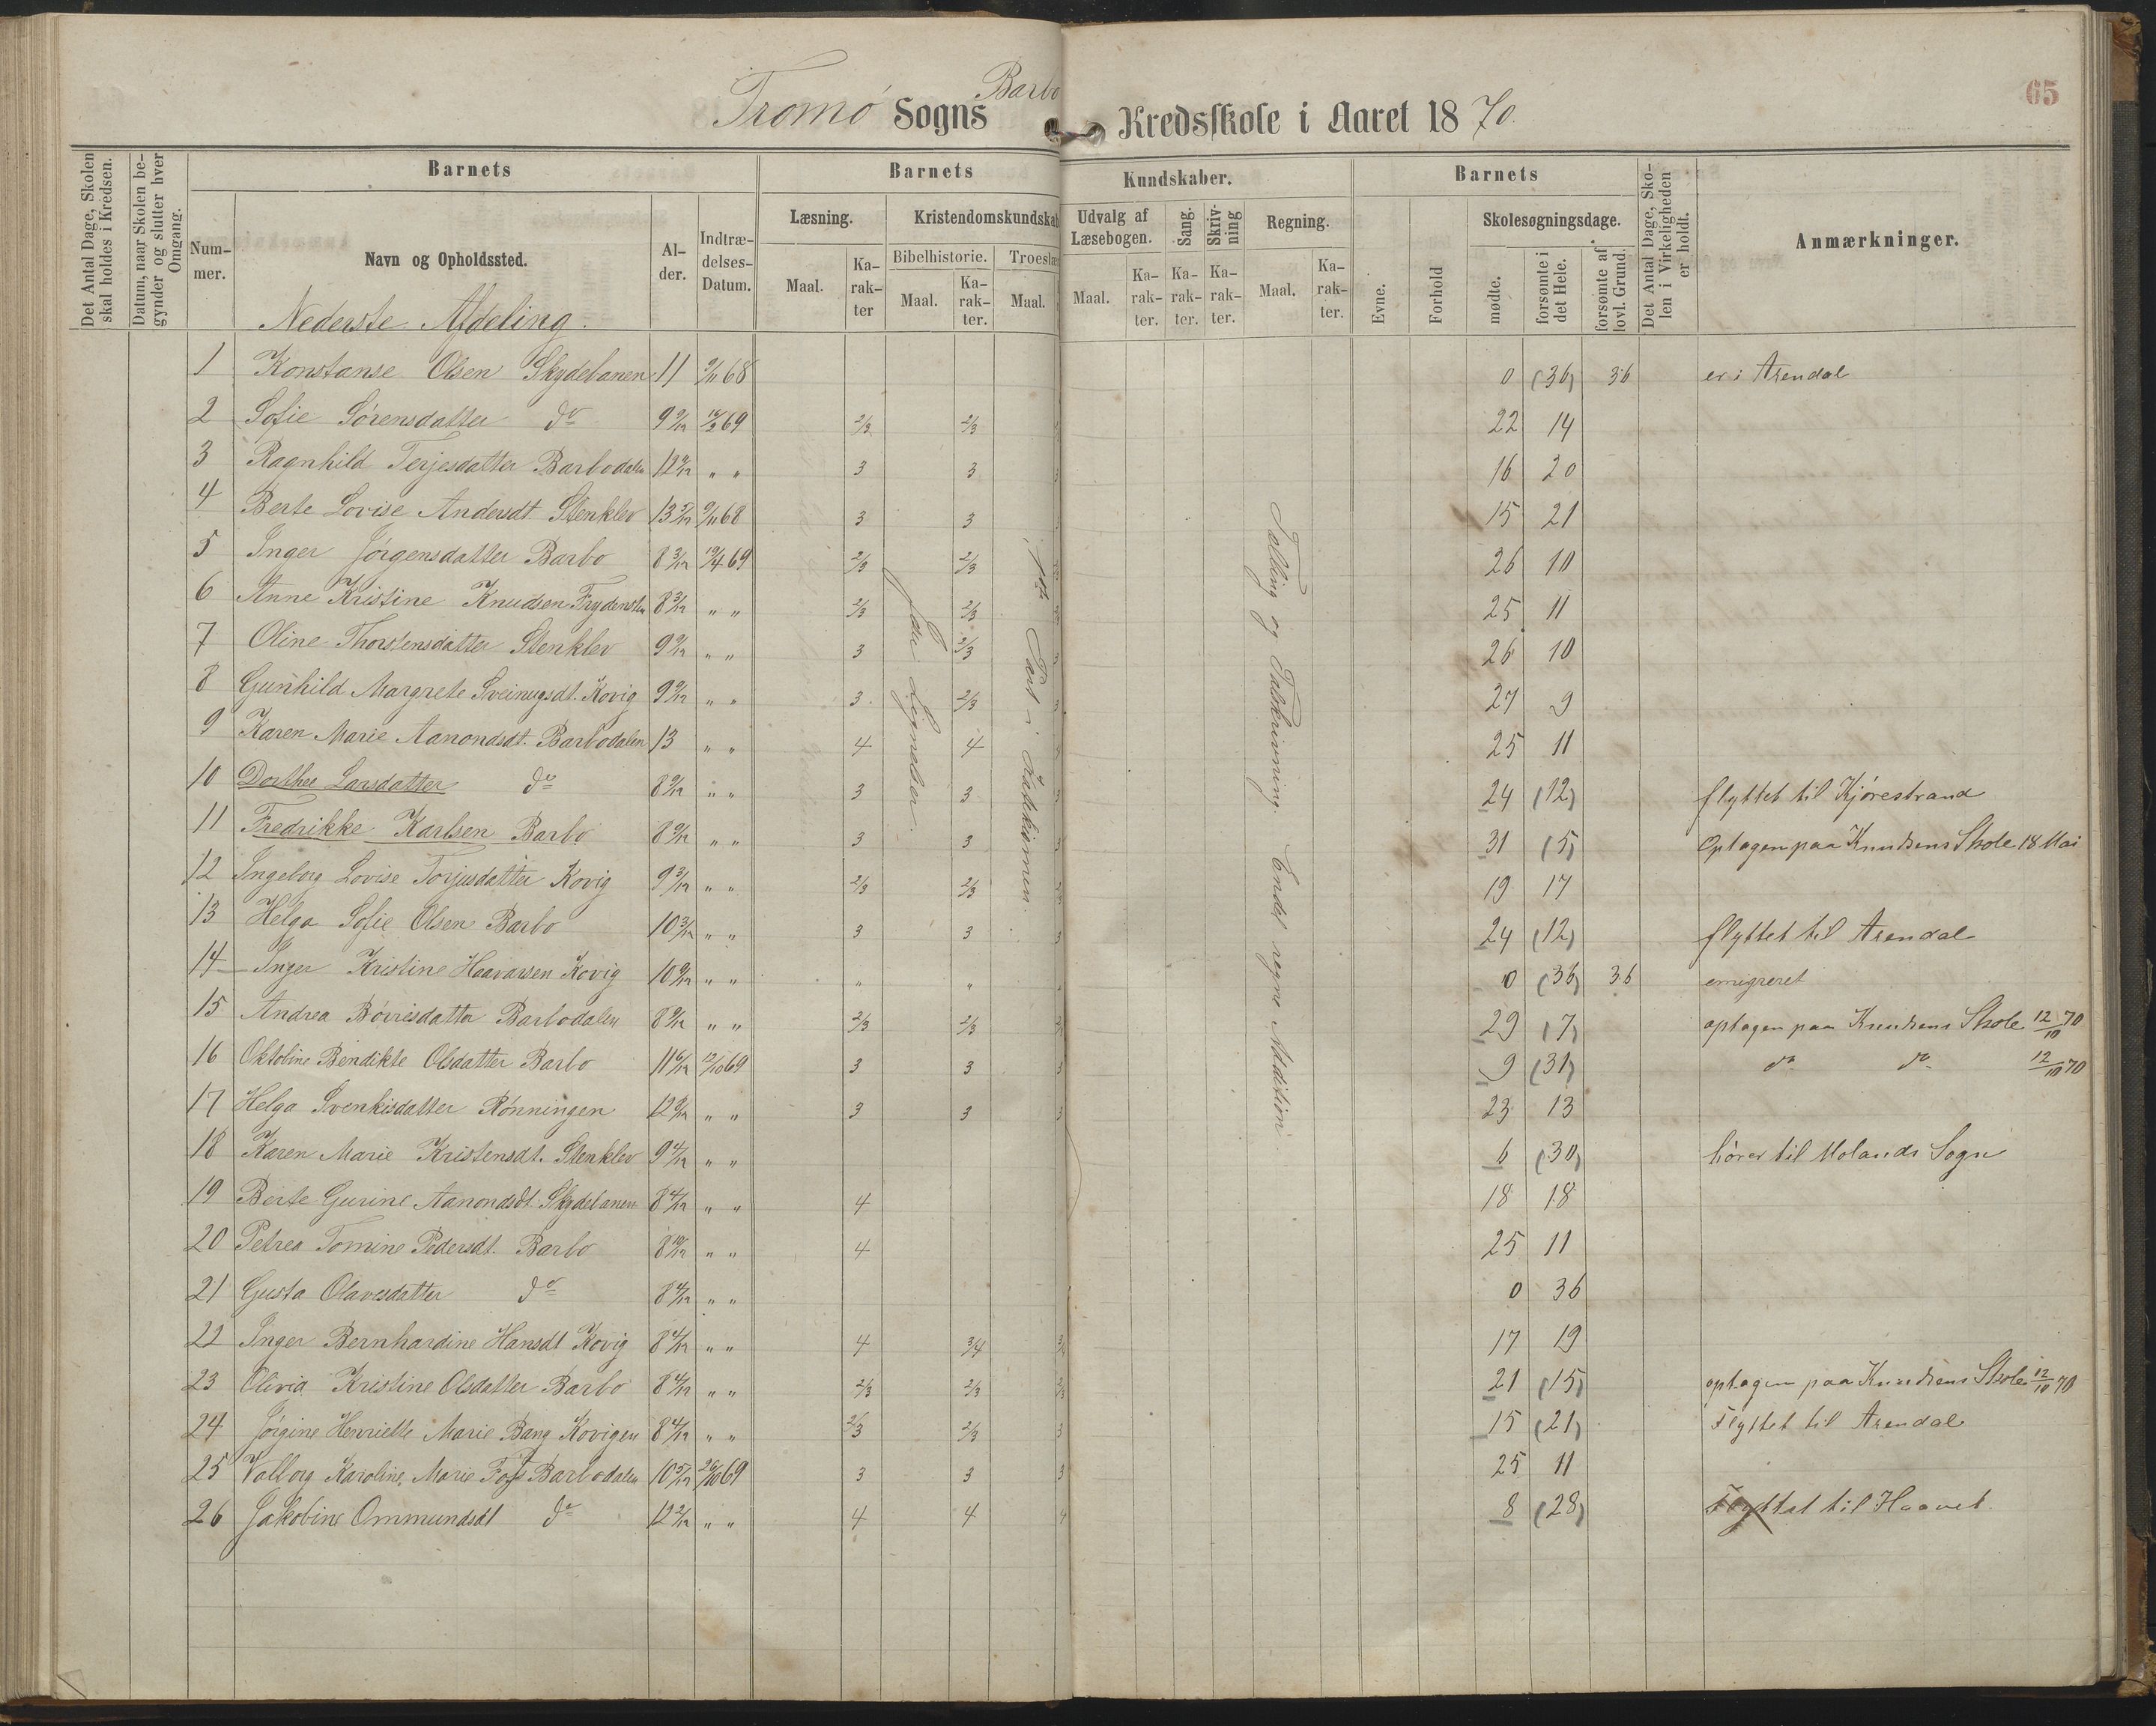 65
Barbo
Tromö Sogns Kredsskole i Aaret 1870.
Det Antal Dage, Skolen skal holdes i Kredsen.
Datum, naar Skolen begynder og slutter hver Omgang.
Barnets Barnets Kundskaber. Barnets
Nummer. Navn og Opholdssted. Alder. Indtrædelses-Datum.
Læsning. Maal. Karakter
Kristendomskundskab
Bibelhistorie. Maal. Karakter. Troeslære Maal.
Udvalg af Læsebogen. Maal. Karakter. Sang. Karakter. Skrivning Karakter. Regning. Maal. Karakter.
Evne. Forhold Skolesøgningsdage. mødte. forsømte i det Hele. forsømte af lovl. Grund.
Det Antal Dage, Skolen i Virkeligheden er holdt.
Anmærkninger.
Nederste Afdeling.
1 Konstanse Olsen Skydebanen 11 9/11 68 0 (36) 36 er i Arendal
2 Sofie Sörensdatter do 9 9/12 69 2/3 2/3 22 14
3 Ragnhild Terjesdatter Barbodalen 12 9/12 " " 3 3 16 20
4 Berte Lovise Andersdt. Stenklev 13 5/12 9/11 68 3 3 15 21
5 Inger Jörgensdatter Barbo 8 3/12 19/4 69 2/3 2/3 26 10
6 Anne Kristine Knudsen Frydensten 8 3/12 " " 2/3 2/3 25 11
7 Oline Thorstensdatter Stenklev 9 9/12 " " 3 2/3 26 10
8 Gunhild Margrete Sveinugsdt. Kovig 9 9/12 " " 3 2/3 27 9
9 Karen Marie Aanondsdt. Barbodalen 13 " " 4 4 25 11
10 Dorthee Larsdatter do 8 9/12 " " 3 3 24 (12) flyttet til Kjörestrand
11 Fredrikke Karlsen Barbo 8 9/12 " " 3 3 31 (5) Optagen paa Knudsens Skole 18 Mai
12 Ingeborg Lovise Torjusdatter Kovig 9 3/12 " " 2/3 2/3 19 17
13 Helga Sofie Olsen Barbo 10 3/12 " " 3 3 24 (12) flyttet til Arendal
14 Inger Kristine Haavarsen Kovig 10 9/12 " " " " 0 (36) 36 emigreret
15 Andrea Börresdatter Barbodalen 8 9/12 " " 2/3 2/3 29 (7) optagen paa Knudsens Skole 12/10 70
16 Oktobine Bendikte Olsdatter Barbo 11 6/12 12/10 69 3 3 9 (31) do do 12/10 70
17 Helga Svenkisdatter Rönningen 12 9/12 " " 3 3 23 13
18 Karen Marie Kristensdt. Stenklev 9 4/12 " " 6 (30) hörer til Molands Sogn
19 Berte Gurine Aanondsdt. Skydebanen 8 4/12 " " 4 18 18
20 Petrea Tomine Pedersdt. Barbo 8 10/12 " " 4 25 11
21 Gusta Olavesdatter do 8 4/12 " " 0 36
22 Inger Bernhardine Hansdt Kovig 8 4/12 " " 4 3/4 17 19
23 Olivia Kristine Olsdatter Barbo 8 4/12 " " 2/3 2/3 21 (15) optagen paa Knudsens Skole 12/10 70
24 Jörgine Henriette Marie Bang Kovigen 8 4/12 " " 2/3 2/3 15 (21) Flyttet til Arendal
25 Valborg Karoline Marie Foss Barbodalen 10 5/12 26/10 69 3 3 25 11
26 Jakobine Ommundsdt do 12 2/12 " " 4 4 8 (28) Flyttet til Haavet
Jesu Lignelser.
1ste Part i Katekismen.
Tælling og Talskrivning. Endel regne Addition